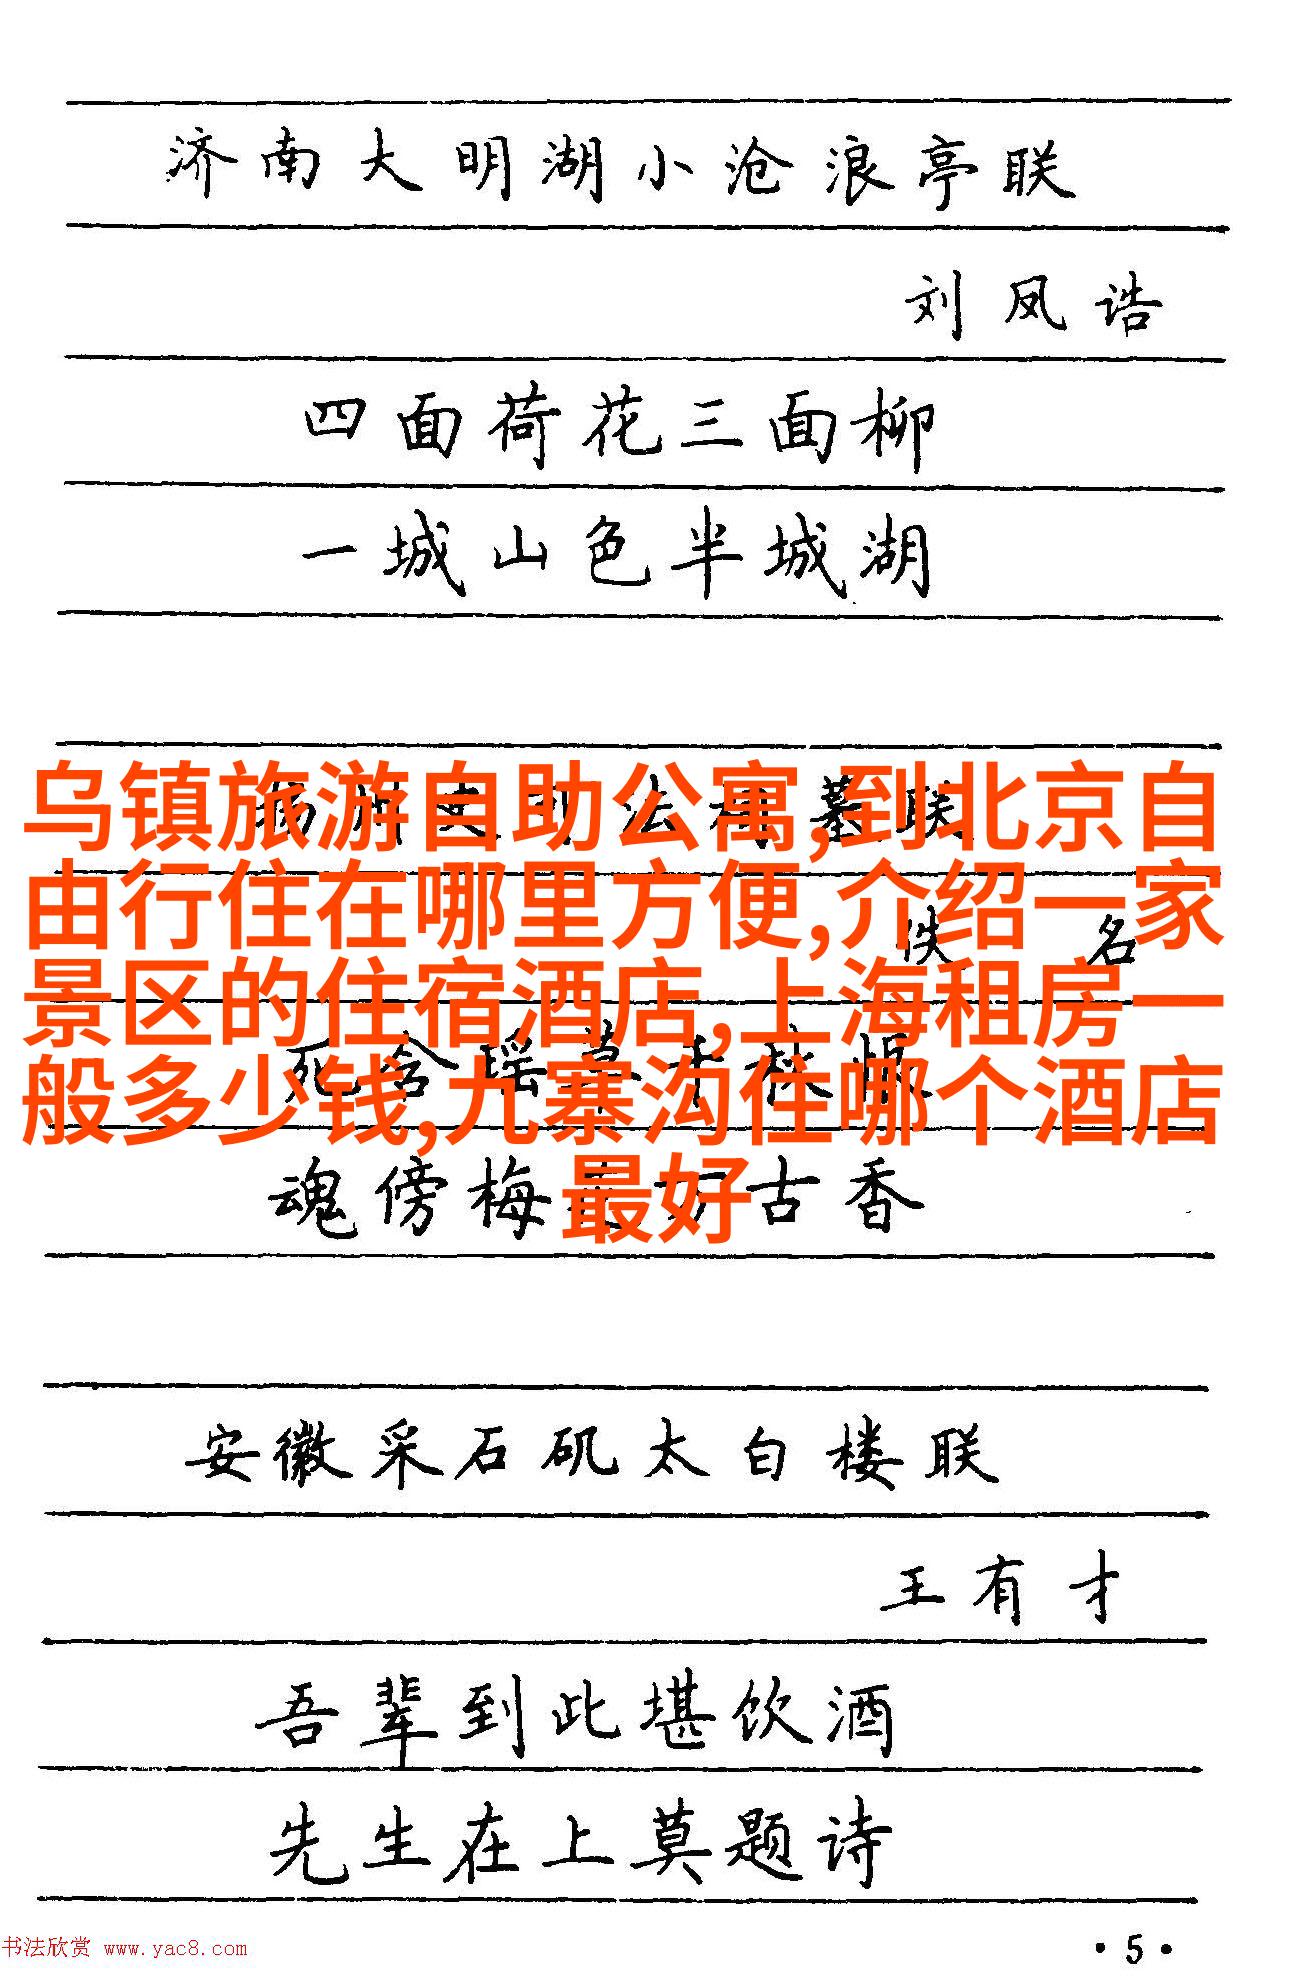 济南大明湖小沧浪亭联
刘凤诰
四面荷花三面柳
一城山色半城湖
乌镇旅游自助公寓,到北京自
由行住在哪里方便,介绍一家
景区的住宿酒店,上海租房一
般多少钱,九寨沟住哪个酒店
最好
法 墓联
佚名
死含
魂傍梅 古香
安徽采石矶太白楼联
王有才
吾辈到此堪饮酒
先生在上莫题诗
书法欣赏 www.yac8.com
·5·